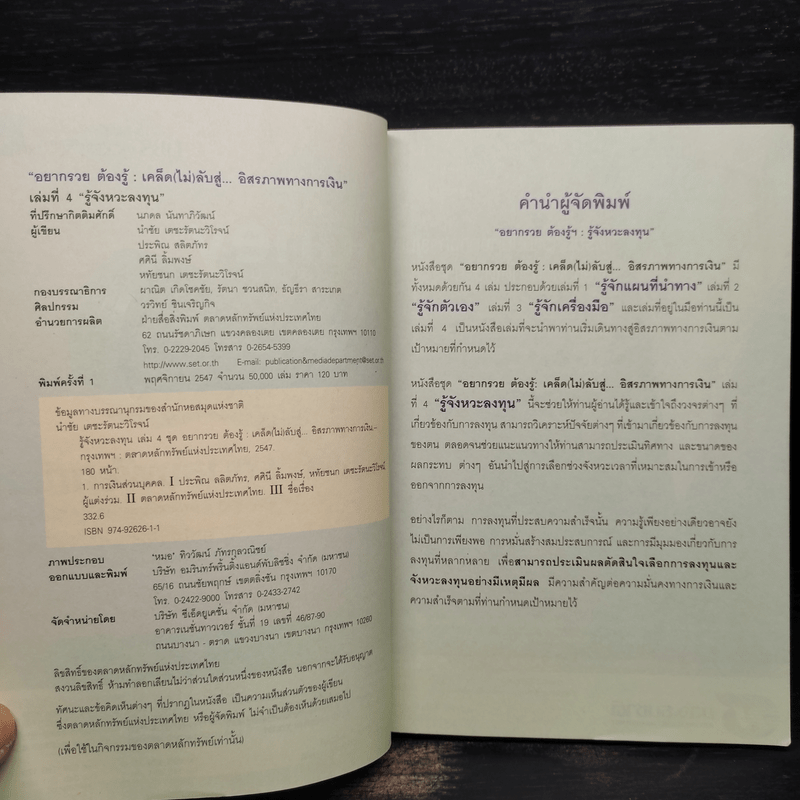 "อยากรวย ต้องรู้ : เคล็ด(ไม่)ลับสู่... อิสรภาพทางการเงิน"
เล่มที่ 4 "รู้จังหวะลงทุน"
ที่ปรึกษากิตติมศักดิ์ นภดล นันทาภิวัฒน์
ผู้เขียน นำชัย เตชะรัตนะวิโรจน์
ประพิณ ลลิตภัทร
ศศินี ลิ้มพงษ์
หทัยชนก เตชะรัตนะวิโรจน์
กองบรรณาธิการ ผาณิต เกิดโชคชัย, รัตนา ชวนสนิท, ธัญธีรา สาระเกต
ศิลปกรรม วรวิทย์ ชินเจริญกิจ
อำนวยการผลิต ฝ่ายสื่อสิ่งพิมพ์ ตลาดหลักทรัพย์แห่งประเทศไทย
62 ถนนรัชดาภิเษก แขวงคลองเตย เขตคลองเตย กรุงเทพฯ 10110
โทร. 0-2229-2045 โทรสาร 0-2654-5399
http://www.set.or.th E-mail: publication&mediadepartment@set.or.th
พิมพ์ครั้งที่ 1 พฤศจิกายน 2547 จำนวน 50,000 เล่ม ราคา 120 บาท
ข้อมูลทางบรรณานุกรมของสำนักหอสมุดแห่งชาติ
นำชัย เตชะรัตนะวิโรจน์
รู้จังหวะลงทุน เล่ม 4 ชุด อยากรวย ต้องรู้ : เคล็ด(ไม่)ลับสู่... อิสรภาพทางการเงิน.--
กรุงเทพฯ : ตลาดหลักทรัพย์แห่งประเทศไทย, 2547.
180 หน้า.
1. การเงินส่วนบุคคล. I ประพิณ ลลิตภัทร, ศศินี ลิ้มพงษ์, หทัยชนก เตชะรัตนะวิโรจน์
ผู้แต่งร่วม. II ตลาดหลักทรัพย์แห่งประเทศไทย. III ชื่อเรื่อง
332.6
ISBN 974-92626-1-1
ภาพประกอบ "หมอ" ทิววัฒน์ ภัทรกุลวณิชย์
ออกแบบและพิมพ์ บริษัท อมรินทร์พริ้นติ้งแอนด์พับลิชชิ่ง จำกัด (มหาชน)
65/16 ถนนชัยพฤกษ์ เขตตลิ่งชัน กรุงเทพฯ 10170
โทร. 0-2422-9000 โทรสาร 0-2433-2742
จัดจำหน่ายโดย บริษัท ซีเอ็ดยูเคชั่น จำกัด (มหาชน)
อาคารเนชั่นทาวเวอร์ ชั้นที่ 19 เลขที่ 46/87-90
ถนนบางนา - ตราด แขวงบางนา เขตบางนา กรุงเทพฯ 10260
ลิขสิทธิ์ของตลาดหลักทรัพย์แห่งประเทศไทย
สงวนลิขสิทธิ์ ห้ามทำลอกเลียนไม่ว่าส่วนใดส่วนหนึ่งของหนังสือ นอกจากจะได้รับอนุญาต
ทัศนะและข้อคิดเห็นต่างๆ ที่ปรากฏในหนังสือ เป็นความเห็นส่วนตัวของผู้เขียน
ซึ่งตลาดหลักทรัพย์แห่งประเทศไทย หรือผู้จัดพิมพ์ ไม่จำเป็นต้องเห็นด้วยเสมอไป
(เพื่อใช้ในกิจกรรมของตลาดหลักทรัพย์เท่านั้น)
คำนำผู้จัดพิมพ์
"อยากรวย ต้องรู้ฯ : รู้จังหวะลงทุน"
หนังสือชุด "อยากรวย ต้องรู้ : เคล็ด(ไม่)ลับสู่... อิสรภาพทางการเงิน" มี
ทั้งหมดด้วยกัน 4 เล่ม ประกอบด้วยเล่มที่ 1 "รู้จักแผนที่นำทาง" เล่มที่ 2
"รู้จักตัวเอง" เล่มที่ 3 "รู้จักเครื่องมือ" และเล่มที่อยู่ในมือท่านนี้เป็น
เล่มที่ 4 เป็นหนังสือเล่มที่จะนำพาท่านเริ่มเดินทางสู่อิสรภาพทางการเงินตาม
เป้าหมายที่กำหนดไว้
หนังสือชุด "อยากรวย ต้องรู้: เคล็ด(ไม่)ลับสู่... อิสรภาพทางการเงิน" เล่ม
ที่ 4 "รู้จังหวะลงทุน" นี้จะช่วยให้ท่านผู้อ่านได้รู้และเข้าใจถึงวงจรต่างๆ ที่
เกี่ยวข้องกับการลงทุน สามารถวิเคราะห์ปัจจัยต่างๆ ที่เข้ามาเกี่ยวข้องกับการลงทุน
ของตน ตลอดจนช่วยแนะแนวทางให้ท่านสามารถประเมินทิศทาง และขนาดของ
ผลกระทบ ต่างๆ อันนำไปสู่การเลือกช่วงจังหวะเวลาที่เหมาะสมในการเข้าหรือ
ออกจากการลงทุน
อย่างไรก็ตาม การลงทุนที่ประสบความสำเร็จนั้น ความรู้เพียงอย่างเดียวอาจยัง
ไม่เป็นการเพียงพอ การหมั่นสร้างสมประสบการณ์ และการมีมุมมองเกี่ยวกับการ
ลงทุนที่หลากหลาย เพื่อสามารถประเมินผลตัดสินใจเลือกการลงทุนและ
จังหวะลงทุนอย่างมีเหตุมีผล มีความสำคัญต่อความมั่นคงทางการเงินและ
ความสำเร็จตามที่ท่านกำหนดเป้าหมายไว้